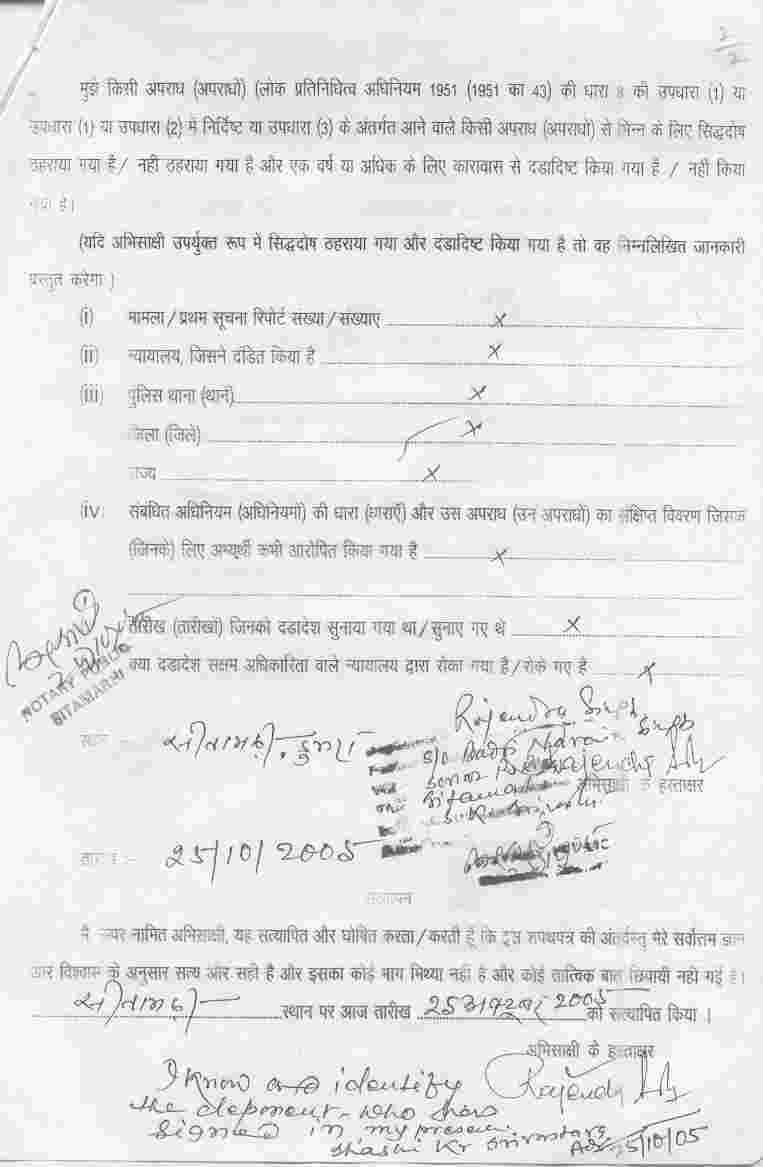 2/2
मुझे किसी अपराध (अपराधों) (लोक प्रतिनिधित्व अधिनियम 1951 (1951 का 43) की धारा 8 की उपधारा (1) या
उपधारा (1) या उपधारा (2) में निर्दिष्ट या उपधारा (3) के अंतर्गत आने वाले किसी अपराध (अपराधों) से भिन्न के लिए सिद्धदोष
ठहराया गया है / नहीं ठहराया गया है और एक वर्ष या अधिक के लिए कारावास से दंडादिष्ट किया गया है / नहीं किया
गया है।
(यदि अभिसाक्षी उपर्युक्त रूप में सिद्धदोष ठहराया गया और दंडादिष्ट किया गया है तो वह निम्नलिखित जानकारी
प्रस्तुत करेगा।)
(i) मामला / प्रथम सूचना रिपोर्ट संख्या / संख्याएं x
(ii) न्यायालय, जिसने दंडित किया है x
(iii) पुलिस थाना (थाने) x
जिला (जिले) x
राज्य x
(iv) संबंधित अधिनियम (अधिनियमों) की धारा (धाराएँ) और उस अपराध (उन अपराधों) का संक्षिप्त विवरण जिसके
(जिनके) लिए अभ्यर्थी कभी आरोपित किया गया है x
तारीख (तारीखों) जिनको दंडादेश सुनाया गया था / सुनाए गए थे x
क्या दंडादेश सक्षम अधिकारिता वाले न्यायालय द्वारा रोका गया है / रोके गए है x
NOTARY PUBLIC
SITAMARHI
Rajendra Singh
स्थान :- सीतामढ़ी, डुमरा
S/o Narain Singh
अभिसाक्षी के हस्ताक्षर
तारीख :- 25/10/2005
सत्यापन
मैं ऊपर नामित अभिसाक्षी, यह सत्यापित और घोषित करता / करती हूँ कि इस शपथपत्र की अंतर्वस्तु मेरे सर्वोत्तम ज्ञान
और विश्वास के अनुसार सत्य और सही है और इसका कोई भाग मिथ्या नहीं है और कोई तात्विक बात छिपायी नहीं गई है।
सीतामढ़ी स्थान पर आज तारीख 25 अक्टूबर 2005 को सत्यापित किया।
अभिसाक्षी के हस्ताक्षर
I know and identify
the deponent who has
signed in my presence
Shashi Kr Srivastava
25/10/05